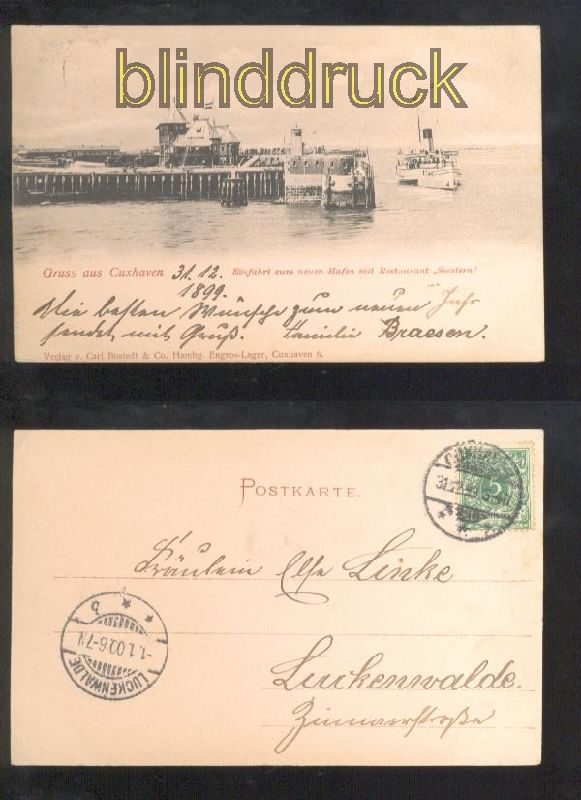 blinddruck
Gruss aus Cuxhaven 31.12. Einfahrt zum neuen Hafen mit Restaurant „Seestern"
1899.
Die besten Wünsche zum neuen Jahr
sendet mit Gruß. Familie Braesen.
Verlag v. Carl Bostedt & Co, Hambg. Engros-Lager, Cuxhaven 6.
POSTKARTE.
CUXHAVEN
5
Fräulein Else Linke
-1.1.00.6-7V
LUCKENWALDE
Luckenwalde.
Zinnaerstraße